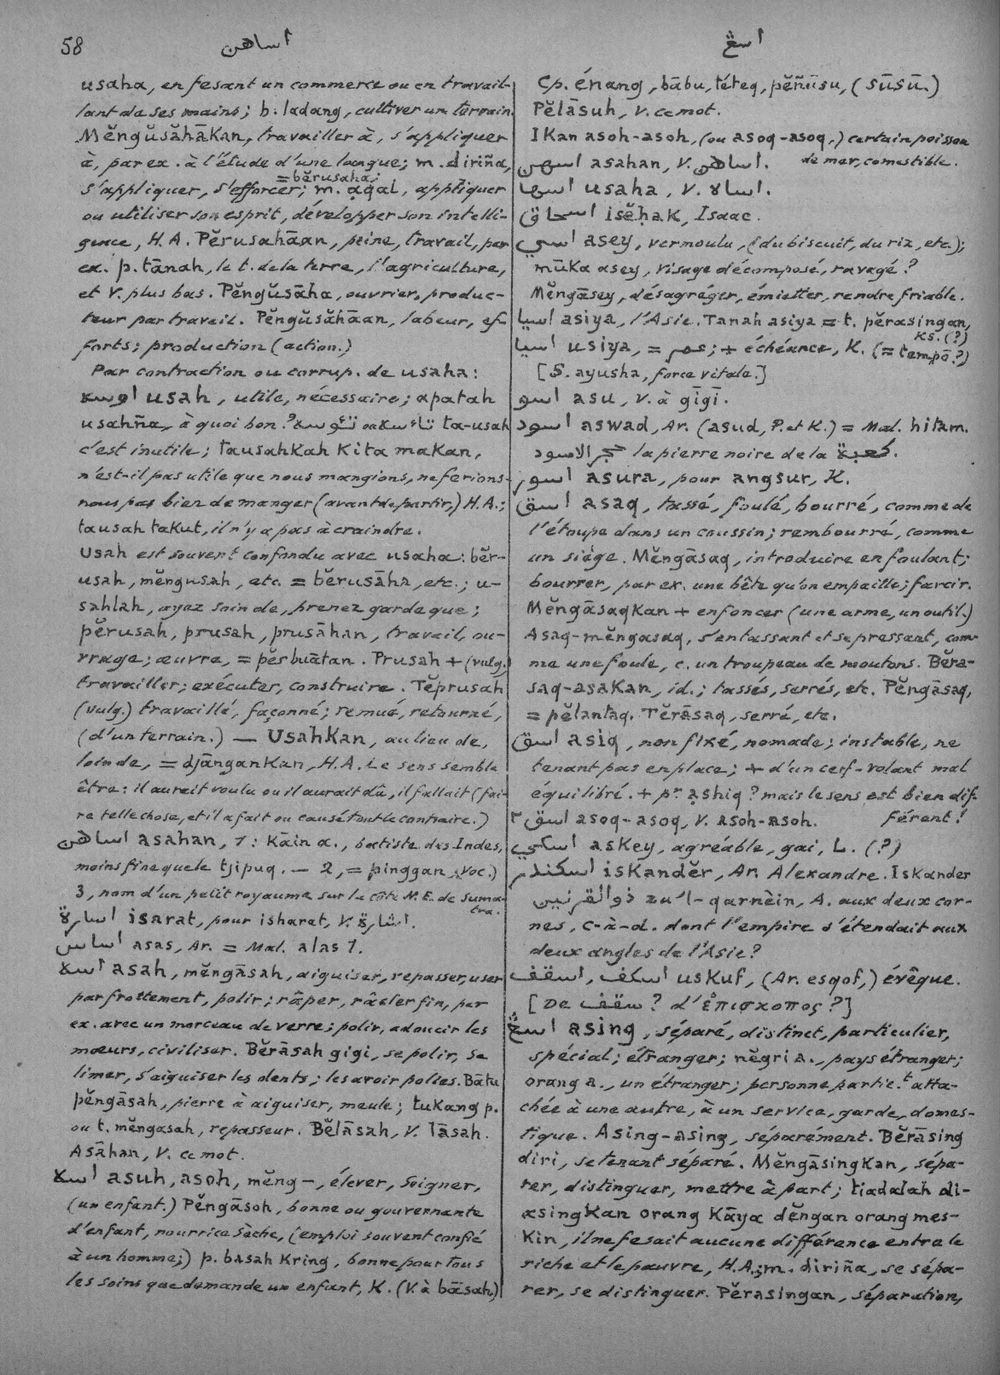 58
اساهن
اسڠ
usaha, en fesant un commerce ou en travail-
lant de ses mains; b. ladang, cultiver un terrain.
Mĕngŭsăhākan, travailler à, s'appliquer
à, par ex. à l'étude d'une langue; m. diriña,
s'appliquer, s'efforcer; = bĕrusaha; m. aqal, appliquer
ou utiliser son esprit, développer son intelli-
gence, H.A. Pĕrusahāan, peine, travail, par
ex. p. tānah, le t. de la terre, l'agriculture,
et V. plus bas. Pĕngŭsāha, ouvrier, produc-
teur par travail. Pĕngŭsăhāan, labeur, ef-
forts; production (action.)
Par contraction ou corrup. de usaha:
اوسه usah, utile, nécessaire; apatah
usahña, à quoi bon? تاءوسه ou تئوسه ta-usah
c'est inutile; tausahkah kita makan,
n'est-il pas utile que nous mangions, ne ferions-
nous pas bien de manger (avant de partir,) H.A.;
tausah takut, il n'y a pas à craindre.
Usah est souvent confondu avec usaha: bĕr-
usah, mĕngusah, etc. = bĕrusāha, etc.; u-
sahlah, ayez soin de, prenez garde que;
pĕrusah, prusah, prusāhan, travail, ou-
vrage; œuvre, = pĕrbuātan. Prusah + (vulg.)
travailler; exécuter, construire. Tĕprusah
(vulg.) travaillé, façonné; remué, retourné,
(d'un terrain.) — Usahkan, au lieu de,
loin de, = djāngankan, H.A. Le sens semble
être: il aurait voulu ou il aurait dû, il fallait (fai-
re telle chose, et il a fait ou causé tout le contraire.)
اساهن asahan, 1: Kāin a., batiste des Indes,
moins fine que le tjipuq. — 2, = pinggan, (Voc.)
3, nom d'un petit royaume sur la côte N.E. de Suma-
tra.
اسارة isarat, pour isharat, V. اشارة.
اساس asas, Ar. = Mal. alas 1.
اسه asah, mĕngāsah, aiguiser, repasser, user
par frottement, polir; râper, râcler fin, par
ex. avec un morceau de verre; polir, adoucir les
mœurs, civiliser. Bĕrāsah gigi, se polir, se
limer, s'aiguiser les dents; les avoir polies. Bātu
pĕngāsah, pierre à aiguiser, meule; tukang p.
ou t. mĕngasah, repasseur. Bĕlāsah, V. lāsah.
Asāhan, V. ce mot.
اسه asuh, asoh, mĕng-, élever, soigner,
(un enfant.) Pĕngāsoh, bonne ou gouvernante
d'enfant, nourrice sèche, (emploi souvent confié
à un homme;) p. basah kring, bonne pour tous
les soins que demande un enfant, K. (V. à bāsah)
Cp. énang, bābu, téteq, pĕñūsu, (sūsū.)
Pĕlāsuh, V. ce mot.
Ikan asoh-asoh, (ou asoq-asoq,) certain poisson
de mer, comestible.
اسهن asahan, V. اساهن.
اسها usaha, V. اساه.
اسحاق isĕhak, Isaac.
اسي asey, vermoulu, (du biscuit, du riz, etc.);
mūka asey, visage décomposé, ravagé?
Mĕngāsey, désagréger, émietter, rendre friable.
اسيا asiya, l'Asie. Tanah asiya = t. pĕrasingan,
Ks. (?)
اسيا usiya, = عمر; + échéance, K. (= tempō?)
[S. ayusha, force vitale.]
اسو asu, V. à gīgī.
اسود aswad, Ar. (asud, P. et K.) = Mal. hitam.
حجر الاسود la pierre noire de la كعبة.
اسور asura, pour angsur, K.
اسق asaq, tassé, foulé, bourré, comme de
l'étoupe dans un coussin; rembourré, comme
un siége. Mĕngāsaq, introduire en foulant;
bourrer, par ex. une bête qu'on empaille; farcir.
Mĕngāsaqkan + enfoncer (une arme, un outil.)
Asaq-mĕngasaq, s'entassant et se pressant, com-
me une foule, c. un troupeau de moutons. Bĕra-
saq-asakan, id.; tassés, serrés, etc. Pĕngāsaq,
= pĕlantaq. Tĕrāsaq, serré, etc.
اسق asiq, non fixé, nomade; instable, ne
tenant pas en place; + d'un cerf-volant mal
équilibré. + pr ashiq? mais le sens est bien dif-
férent!
اسق٢ asoq-asoq, V. asoh-asoh.
اسكي askey, agréable, gai, L. (?)
اسكندر iskandĕr, Ar. Alexandre. Iskander
ذوالقرنين zu'l-qarnèin, A. aux deux cor-
nes, c-à-d. dont l'empire s'étendait aux
deux angles de l'Asie?
اسكف, اسقف uskuf, (Ar. esqof,) évêque.
[De سقف? d'ἐπισχοπος?]
اسڠ asing, séparé, distinct, particulier,
spécial; étranger; nĕgri a., pays étranger;
orang a., un étranger; personne partic.t atta-
chée à une autre, à un service, garde, domes-
tique. Asing-asing, séparément. Bĕrāsing
diri, se tenant séparé. Mĕngāsingkan, sépa-
rer, distinguer, mettre à part; tiadalah di-
asingkan orang kāya dĕngan orang mes-
kin, il ne fesait aucune différence entre le
riche et le pauvre, H.A.; m. diriña, se sépa-
rer, se distinguer. Pĕrasingan, séparation,